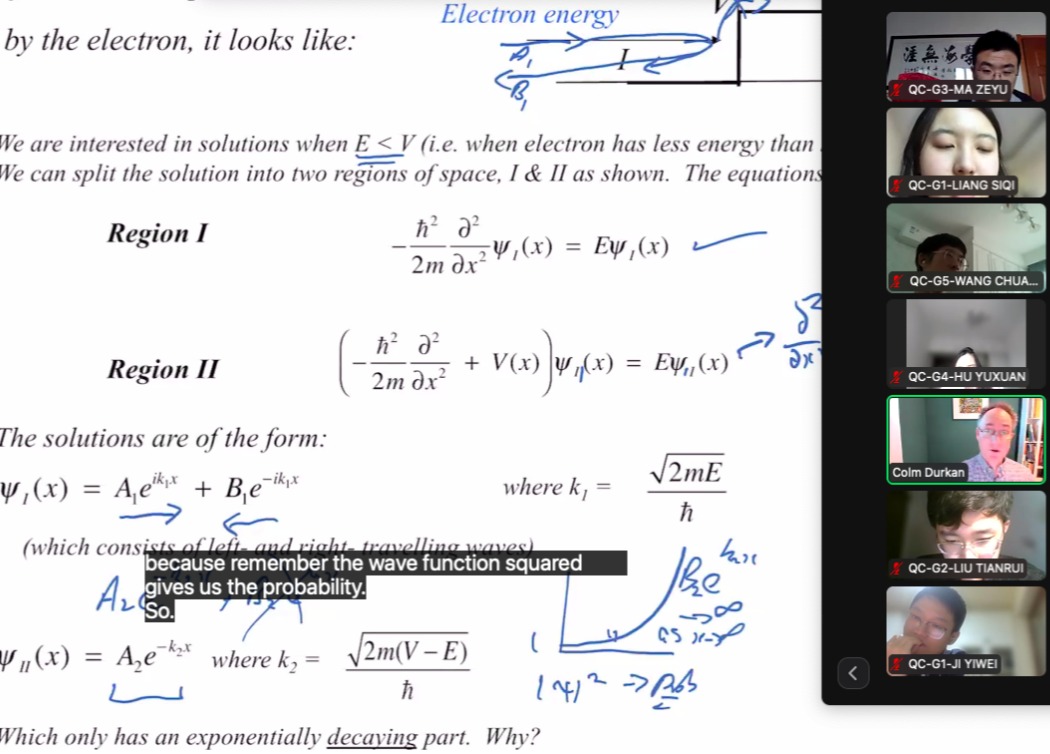 Electron energy
by the electron, it looks like:
A₁
I
B₁
We are interested in solutions when E < V (i.e. when electron has less energy than
We can split the solution into two regions of space, I & II as shown. The equations
Region I
-ħ²/2m ∂²/∂x² ψ_I(x) = Eψ_I(x)
Region II
(-ħ²/2m ∂²/∂x² + V(x))ψ_II(x) = Eψ_II(x)
The solutions are of the form:
ψ_I(x) = A₁e^{ik₁x} + B₁e^{-ik₁x} where k₁ = √2mE/ħ
(which consists of left- and right- travelling waves)
because remember the wave function squared
gives us the probability.
So.
A₂
B₂e^{k₂x}
→∞
as x→∞
ψ_II(x) = A₂e^{-k₂x} where k₂ = √2m(V – E)/ħ
|ψ|² → Prob
Which only has an exponentially decaying part. Why?
QC-G3-MA ZEYU
QC-G1-LIANG SIQI
QC-G5-WANG CHUA...
QC-G4-HU YUXUAN
Colm Durkan
QC-G2-LIU TIANRUI
QC-G1-JI YIWEI